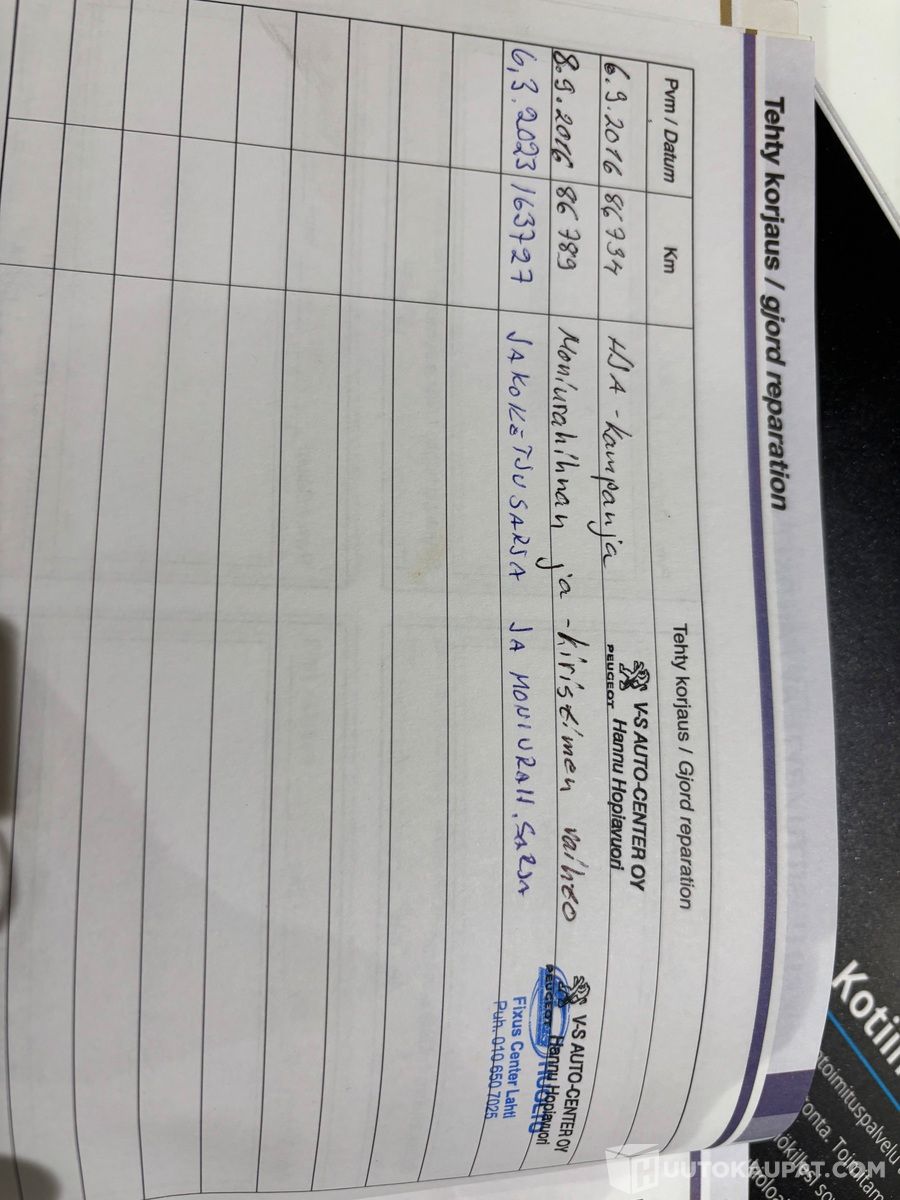 Tehty korjaus / gjord reparation
Pvm / Datum Km Tehty korjaus / Gjord reparation
6.9.2016 86734 HSA-kampanja
PEUGEOT
V-S AUTO-CENTER OY
Hannu Hopiavuori
8.9.2016 86789 Moniurahihnan ja -kiristimen vaihto
PEUGEOT
V-S AUTO-CENTER OY
Hannu Hopiavuori
6,3.2023 163727 JAKOKETJUSARJA JA MONIURAH.SARJA
Fixus Center Lahti
Puh. 010 650 7025
toimituspalvelu
HUUTOKAUPAT.COM